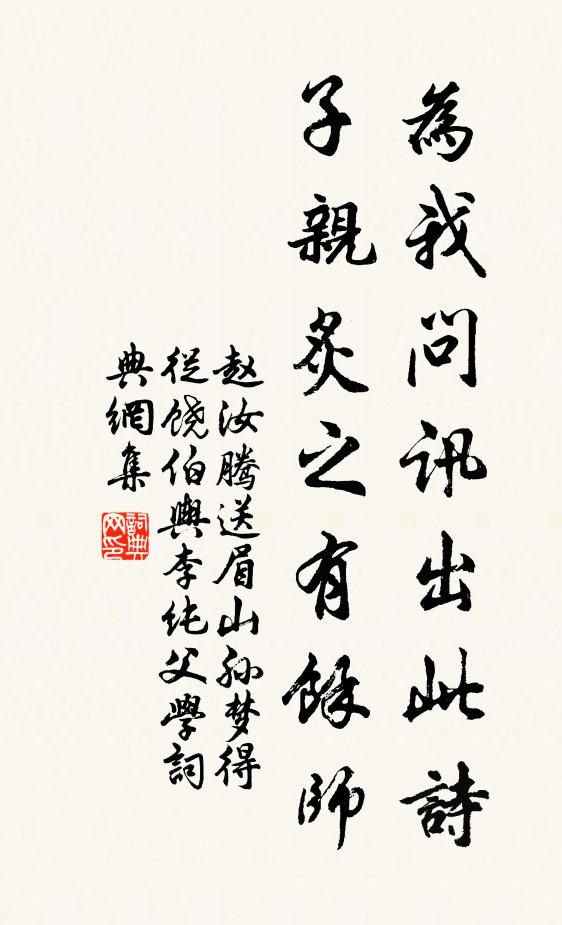 為我問訊出此詩
子親炙之有餘師
赵汝騰送眉山孙梦得
從饶伯與李纯父學詞
典網集
詞典
网印